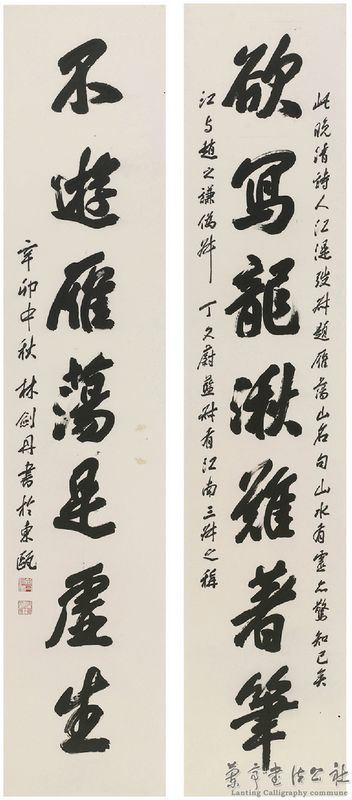 此晚清詩人江湜弢叔題雁蕩山名句山水有靈亦驚知己矣
欲寫龍湫難著筆
江与趙之謙撝叔 丁文蔚藍叔有江南三叔之稱
不遊雁蕩是虛生
辛卯中秋林劍丹書於東甌
蘭亭書法公社
Lanting Calligraphy commune